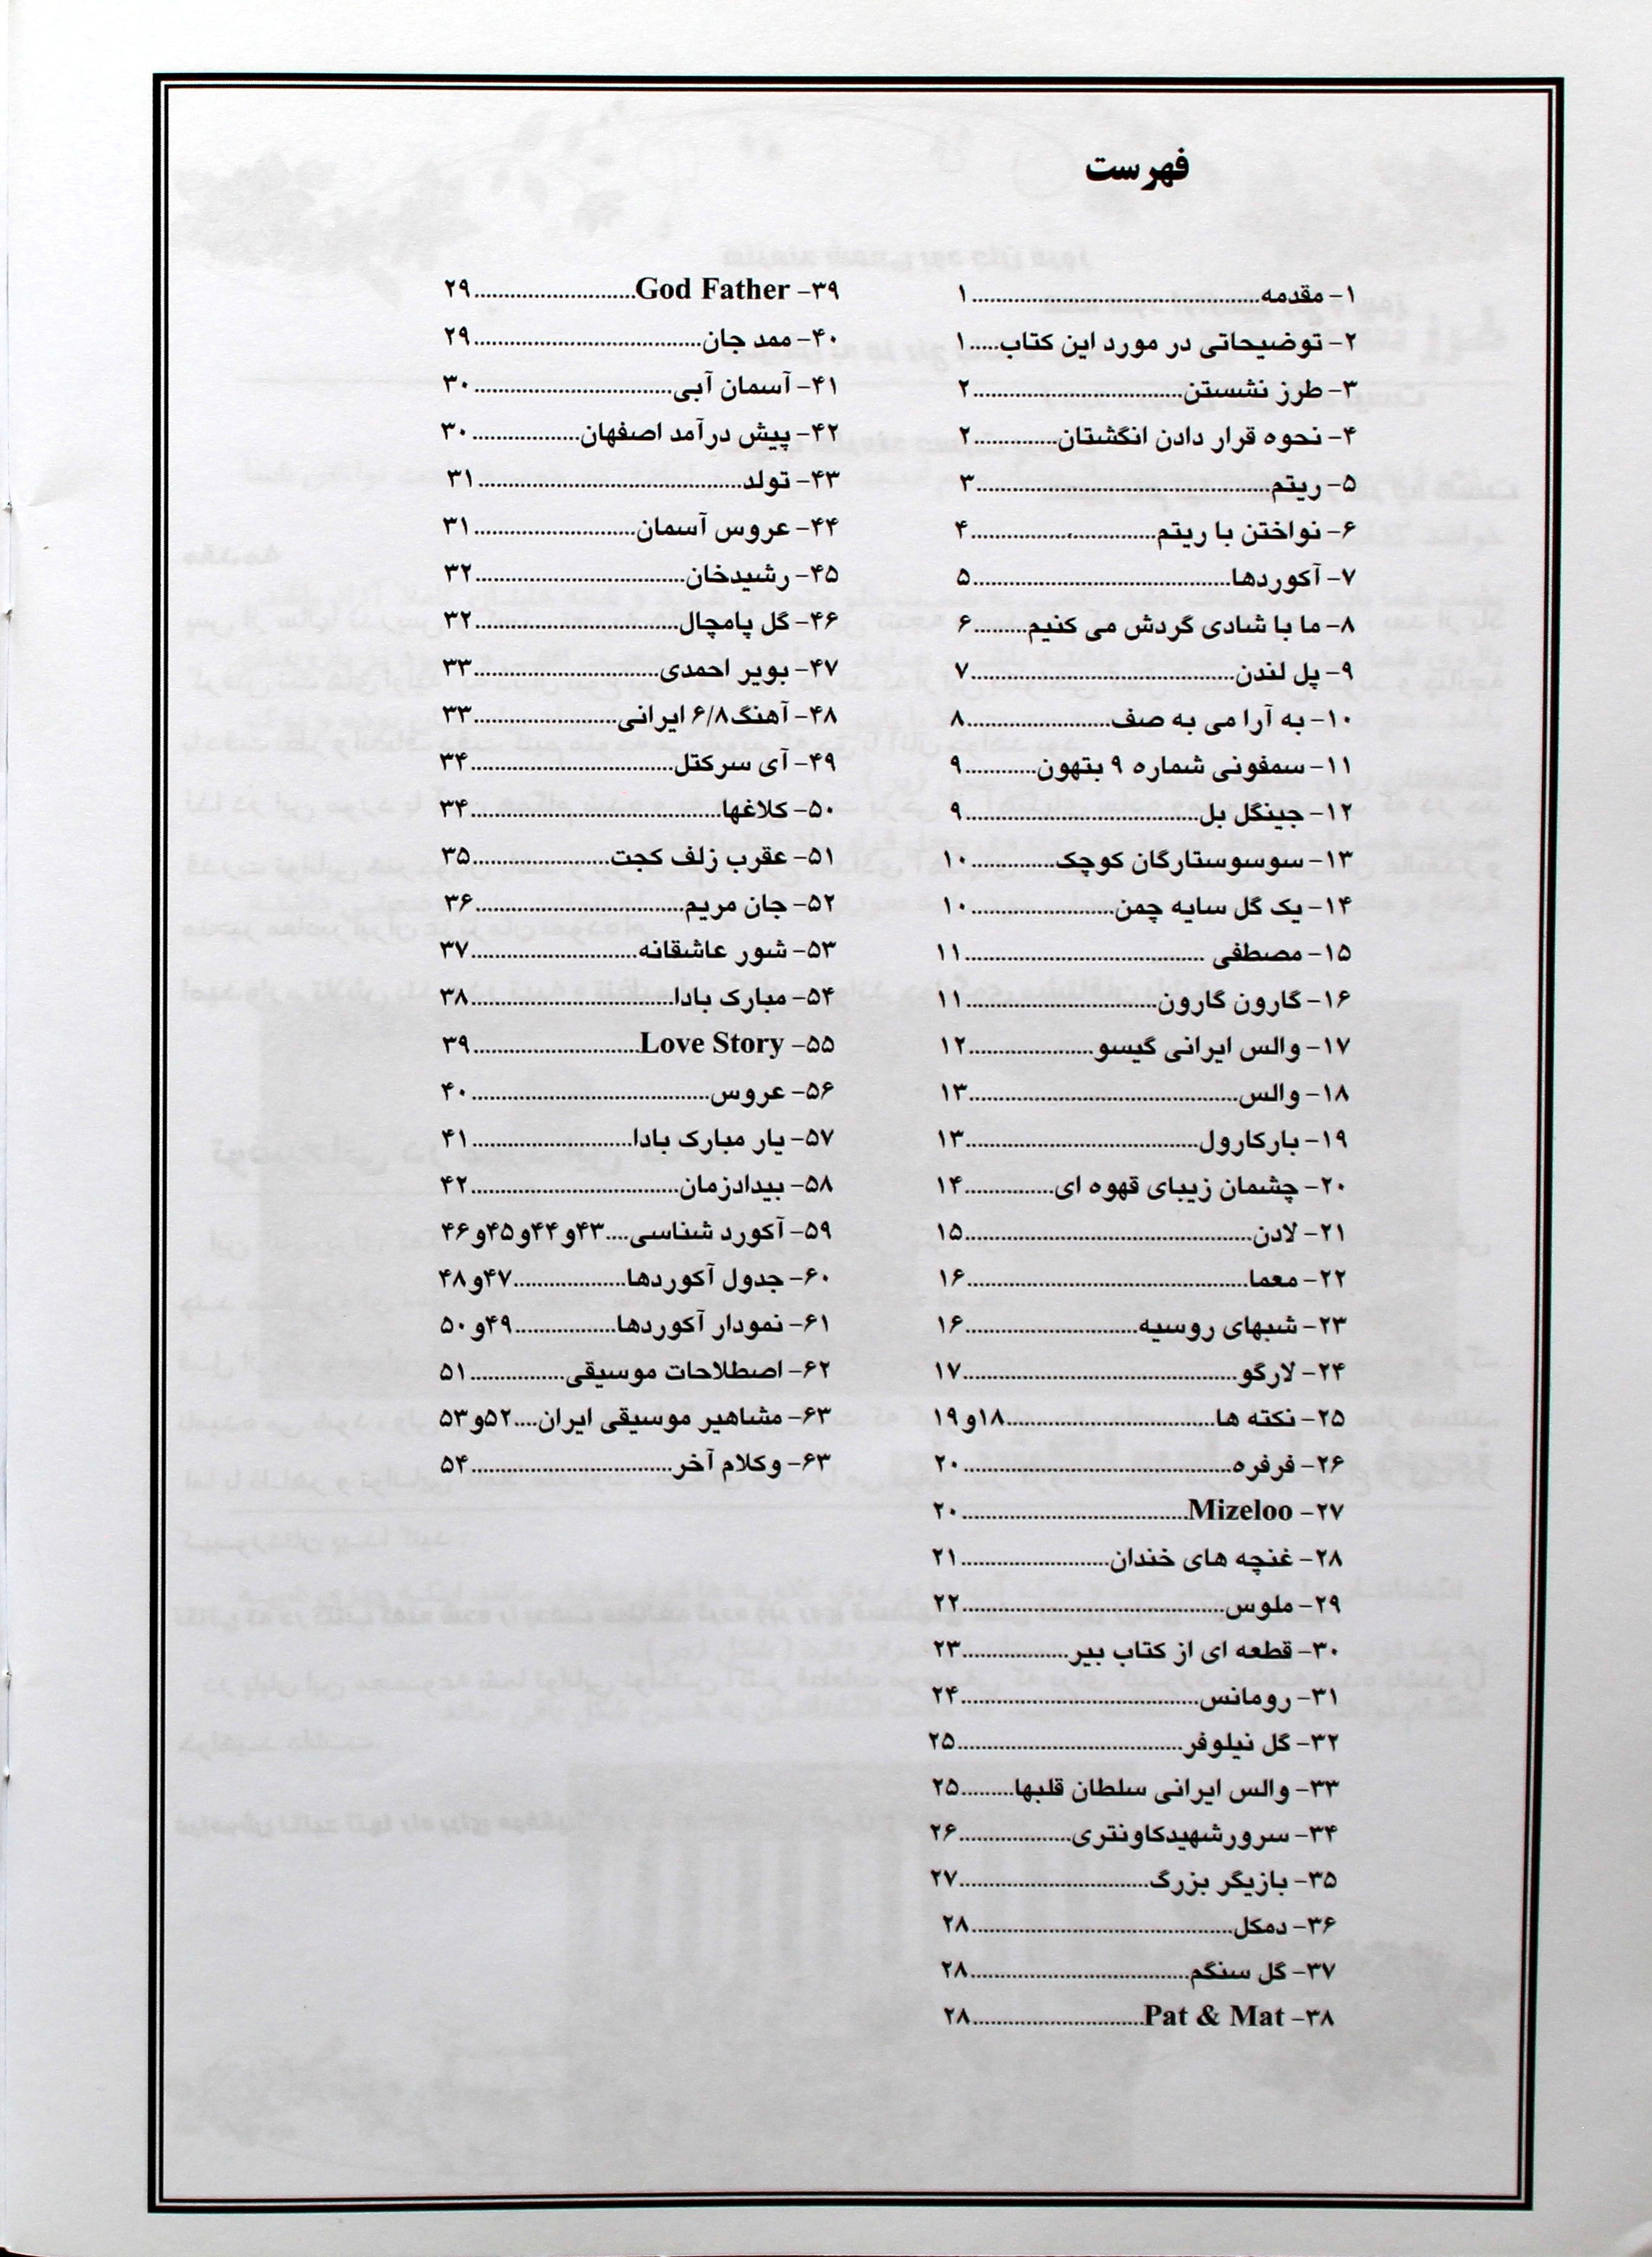 فهرست
۱- مقدمه................................................۱
۲- توضیحاتی در مورد این کتاب.....۱
۳- طرز نشستن...................................۲
۴- نحوه قرار دادن انگشتان..............۲
۵- ریتم.................................................۳
۶- نواختن با ریتم...............................۴
۷- آکوردها...........................................۵
۸- ما با شادی گردش می کنیم.........۶
۹- پل لندن............................................۷
۱۰- به آرا می به صف........................۸
۱۱- سمفونی شماره ۹ بتهون............۹
۱۲- جینگل بل.......................................۹
۱۳- سوسوستارگان کوچک..............۱۰
۱۴- یک گل سایه چمن........................۱۰
۱۵- مصطفی ........................................۱۱
۱۶- گارون گارون................................۱۱
۱۷- والس ایرانی گیسو.....................۱۲
۱۸- والس.............................................۱۳
۱۹- بارکارول.......................................۱۳
۲۰- چشمان زیبای قهوه ای...............۱۴
۲۱- لادن................................................۱۵
۲۲- معما...............................................۱۶
۲۳- شبهای روسیه.............................۱۶
۲۴- لارگو..............................................۱۷
۲۵- نکته ها...................................۱۸و۱۹
۲۶- فرفره.............................................۲۰
۲۷- Mizeloo......................................۲۰
۲۸- غنچه های خندان.........................۲۱
۲۹- ملوس............................................۲۲
۳۰- قطعه ای از کتاب بیر..................۲۳
۳۱- رومانس........................................۲۴
۳۲- گل نیلوفر......................................۲۵
۳۳- والس ایرانی سلطان قلبها.........۲۵
۳۴- سرورشهیدکاونتری...................۲۶
۳۵- بازیگر بزرگ................................۲۷
۳۶- دمکل............................................۲۸
۳۷- گل سنگم.....................................۲۸
۳۸- Pat & Mat.............................۲۸
۳۹- God Father...........................۲۹
۴۰- ممد جان......................................۲۹
۴۱- آسمان آبی.................................۳۰
۴۲- پیش درآمد اصفهان..................۳۰
۴۳- تولد............................................۳۱
۴۴- عروس آسمان...........................۳۱
۴۵- رشیدخان...................................۳۲
۴۶- گل پامچال..................................۳۲
۴۷- بویر احمدی...............................۳۳
۴۸- آهنگ۶/۸ ایرانی........................۳۳
۴۹- آی سرکتل..................................۳۴
۵۰- کلاغها..........................................۳۴
۵۱- عقرب زلف کجت.......................۳۵
۵۲- جان مریم...................................۳۶
۵۳- شور عاشقانه............................۳۷
۵۴- مبارک بادا..................................۳۸
۵۵- Love Story............................۳۹
۵۶- عروس........................................۴۰
۵۷- یار مبارک بادا...........................۴۱
۵۸- بیدادزمان...................................۴۲
۵۹- آکورد شناسی....۴۳و۴۴و۴۵و۴۶
۶۰- جدول آکوردها...................۴۷و۴۸
۶۱- نمودار آکوردها.................۴۹و۵۰
۶۲- اصطلاحات موسیقی................۵۱
۶۳- مشاهیر موسیقی ایران....۵۲و۵۳
۶۳- وکلام آخر..................................۵۴